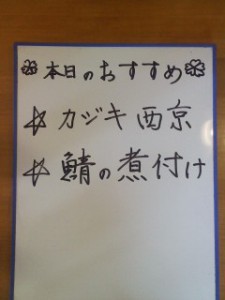 本日のおすすめ
☆ カジキ西京
☆ 鯖の煮付け